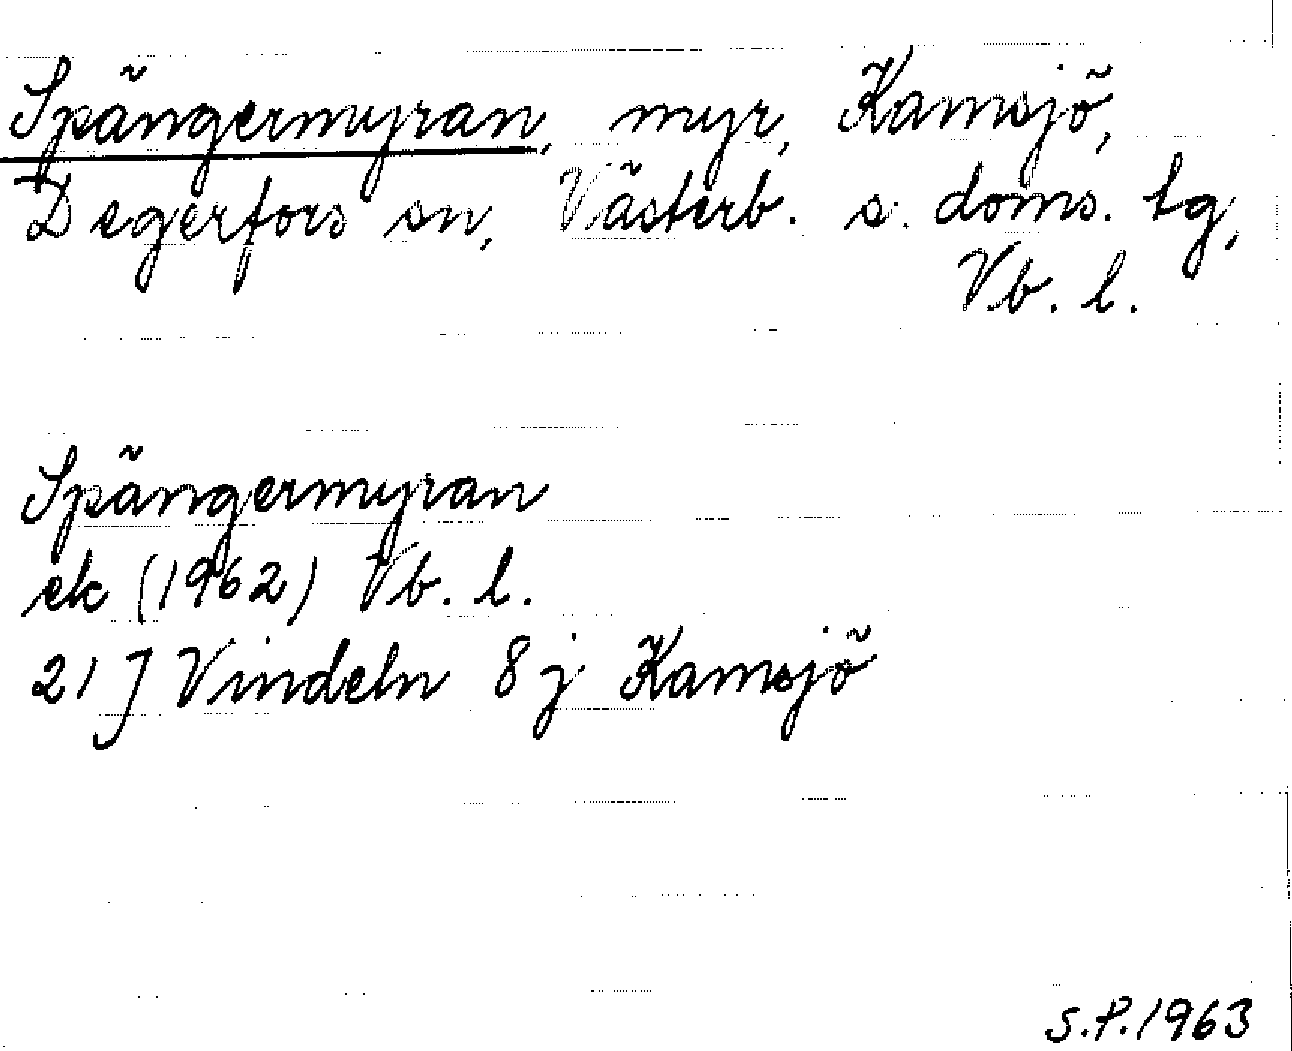 Spängermyran, myr, Kamsjö,
Degerfors sn, Västerb. s. doms. tg,
Vb. l.
Spängermyran
ek (1962) Vb. l.
21 J Vindeln 8 j Kamsjö
S.P. 1963